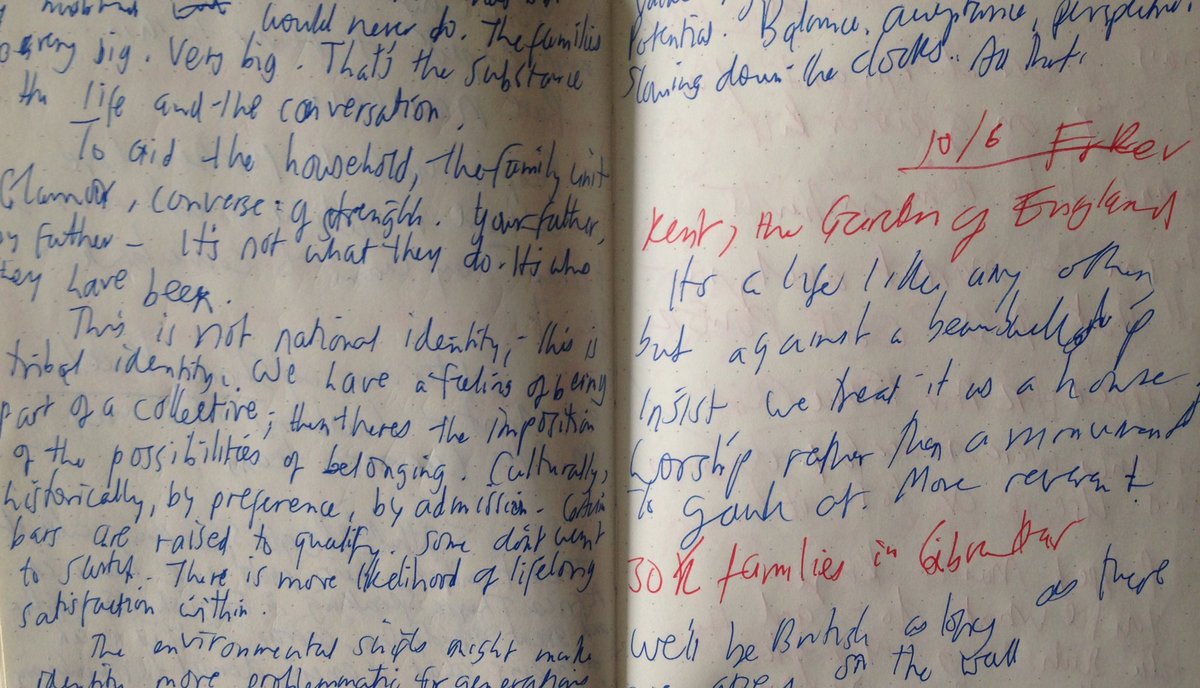 would never do. The families
very big. Very big. That's the substance
the life and the conversation.
To aid the household, the family unit
Glamour, converse of strength. Your father,
my father - It's not what they do. It's who
they have been.
This is not national identity, - this is
tribal identity. We have a feeling of being
part of a collective; then theres the imposition
of the possibilities of belonging. Culturally,
historically, by preference, by admission. Certain
bars are raised to qualify. Some don't want
to. There is more likelihood of lifelong
satisfaction within.
The environmental might make
identity more problemmatic for generations
Potential. Balance, acceptance, perspective.
Slowing down the clocks. All that.
10/6
Kent, the Garden of England
It's a life like any other
but against a
insist we treat it as a house
worship rather than a monument
to gawk at. More reverent.
30K families in Gibraltar
We'll be British as long as there
on the wall